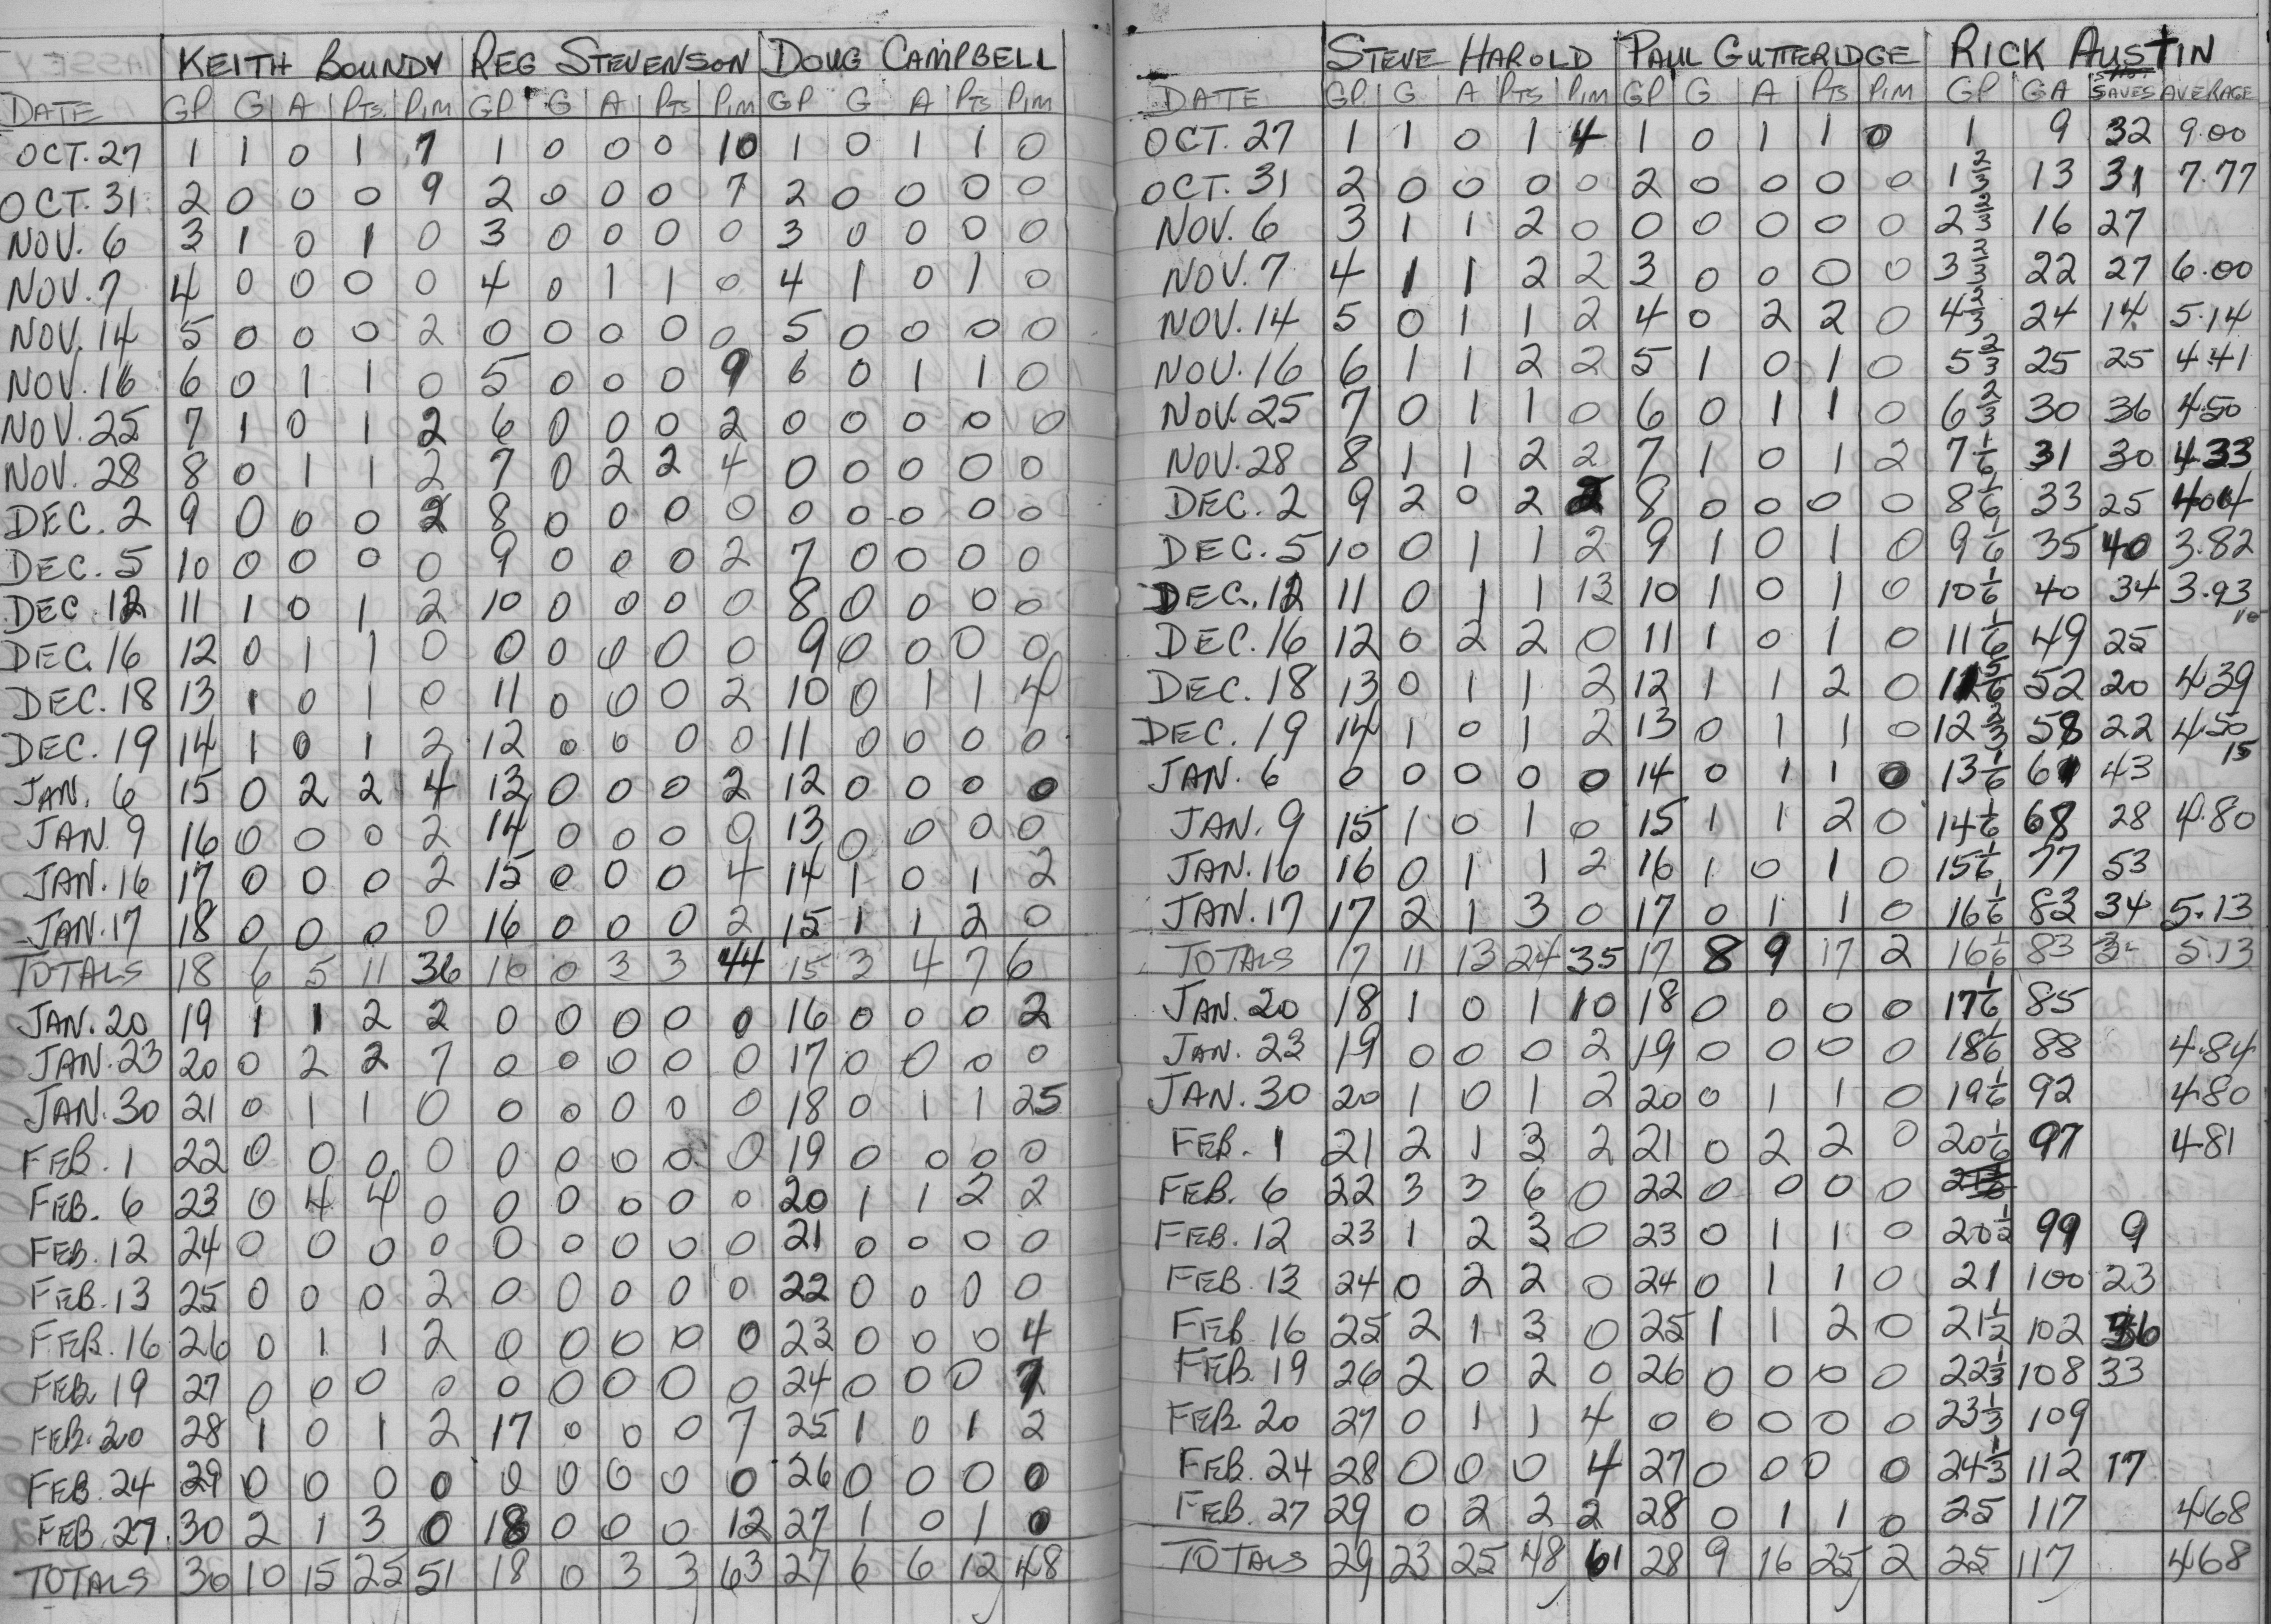 KEITH BOUNDY REG STEVENSON DOUG CAMPBELL
DATE GP G A PTS. PIM GP G A PTS PIM GP G A PTS PIM
OCT. 27 1 1 0 1 7 1 0 0 0 10 1 0 1 1 0
OCT. 31 2 0 0 0 9 2 0 0 0 7 2 0 0 0 0
NOV. 6 3 1 0 1 0 3 0 0 0 0 3 0 0 0 0
NOV. 7 4 0 0 0 0 4 0 1 1 0 4 1 0 1 0
NOV. 14 5 0 0 0 2 0 0 0 0 0 5 0 0 0 0
NOV. 16 6 0 1 1 0 5 0 0 0 9 6 0 1 1 0
NOV. 25 7 1 0 1 2 6 0 0 0 2 0 0 0 0 0
NOV. 28 8 0 1 1 2 7 0 2 2 4 0 0 0 0 0
DEC. 2 9 0 0 0 2 8 0 0 0 0 0 0 0 0 0
DEC. 5 10 0 0 0 0 9 0 0 0 2 7 0 0 0 0
DEC. 12 11 1 0 1 2 10 0 0 0 0 8 0 0 0 0
DEC. 16 12 0 1 1 0 0 0 0 0 0 9 0 0 0 0
DEC. 18 13 1 0 1 0 11 0 0 0 2 10 0 1 1 4
DEC. 19 14 1 0 1 2 12 0 0 0 0 11 0 0 0 0
JAN. 6 15 0 2 2 4 13 0 0 0 2 12 0 0 0 0
JAN. 9 16 0 0 0 2 14 0 0 0 0 13 0 0 0 0
JAN. 16 17 0 0 0 2 15 0 0 0 4 14 1 0 1 2
JAN. 17 18 0 0 0 0 16 0 0 0 2 15 1 1 2 0
TOTALS 18 6 5 11 36 16 0 3 3 44 15 3 4 7 6
JAN. 20 19 1 1 2 2 0 0 0 0 0 16 0 0 0 2
JAN. 23 20 0 2 2 7 0 0 0 0 0 17 0 0 0 0
JAN. 30 21 0 1 1 0 0 0 0 0 0 18 0 1 1 25
FEB. 1 22 0 0 0 0 0 0 0 0 0 19 0 0 0 0
FEB. 6 23 0 4 4 0 0 0 0 0 0 20 1 1 2 2
FEB. 12 24 0 0 0 0 0 0 0 0 0 21 0 0 0 0
FEB. 13 25 0 0 0 2 0 0 0 0 0 22 0 0 0 0
FEB. 16 26 0 1 1 2 0 0 0 0 0 23 0 0 0 4
FEB. 19 27 0 0 0 0 0 0 0 0 0 24 0 0 0 7
FEB. 20 28 1 0 1 2 17 0 0 0 7 25 1 0 1 2
FEB. 24 29 0 0 0 0 0 0 0 0 0 26 0 0 0 0
FEB. 27. 30 2 1 3 0 18 0 0 0 12 27 1 0 1 0
TOTALS 30 10 15 25 51 18 0 3 3 63 27 6 6 12 48
STEVE HAROLD PAUL GUTTERIDGE RICK AUSTIN
DATE GP G A PTS PIM GP G A PTS PIM GP GA SAVES AVERAGE
OCT. 27 1 1 0 1 4 1 0 1 1 0 1 9 32 9.00
OCT. 31 2 0 0 0 0 2 0 0 0 0 1 2/3 13 31 7.77
NOV. 6 3 1 1 2 0 0 0 0 0 0 2 2/3 16 27
NOV. 7 4 1 1 2 2 3 0 0 0 0 3 2/3 22 27 6.00
NOV. 14 5 0 1 1 2 4 0 2 2 0 4 2/3 24 14 5.14
NOV. 16 6 1 1 2 2 5 1 0 1 0 5 2/3 25 25 4.41
NOV. 25 7 0 1 1 0 6 0 1 1 0 6 2/3 30 36 4.50
NOV. 28 8 1 1 2 2 7 1 0 1 2 7 1/6 31 30 4.33
DEC. 2 9 2 0 2 2 8 0 0 0 0 8 1/6 33 25 4.04
DEC. 5 10 0 1 1 2 9 1 0 1 0 9 1/6 35 40 3.82
DEC. 12 11 0 1 1 12 10 1 0 1 0 10 1/6 40 34 3.93
DEC. 16 12 0 2 2 0 11 1 0 1 0 11 1/6 49 25
DEC. 18 13 0 1 1 2 12 1 1 2 0 11 5/6 52 20 4.39
DEC. 19 14 1 0 1 2 13 0 1 1 0 12 2/3 58 22 4.50
JAN. 6 0 0 0 0 0 14 0 1 1 0 13 1/6 61 43
JAN. 9 15 1 0 1 0 15 1 1 2 0 14 1/6 68 28 4.80
JAN. 16 16 0 1 1 2 16 1 0 1 0 15 1/6 77 53
JAN. 17 17 2 1 3 0 17 0 1 1 0 16 1/6 83 34 5.13
TOTALS 17 11 13 24 35 17 8 9 17 2 16 1/6 83 5.13
JAN. 20 18 1 0 1 10 18 0 0 0 0 17 1/6 85
JAN. 23 19 0 0 0 2 19 0 0 0 0 18 1/6 88 4.84
JAN. 30 20 1 0 1 2 20 0 1 1 0 19 1/6 92 4.80
FEB. 1 21 2 1 3 2 21 0 2 2 0 20 1/6 97 4.81
FEB. 6 22 3 3 6 0 22 0 0 0 0
FEB. 12 23 1 2 3 0 23 0 1 1 0 20 1/2 99 9
FEB. 13 24 0 2 2 0 24 0 1 1 0 21 100 23
FEB. 16 25 2 1 3 0 25 1 1 2 0 21 1/2 102 36
FEB. 19 26 2 0 2 0 26 0 0 0 0 22 1/3 108 33
FEB. 20 27 0 1 1 4 0 0 0 0 0 23 1/3 109
FEB. 24 28 0 0 0 4 27 0 0 0 0 24 1/3 112 17
FEB. 27 29 0 2 2 2 28 0 1 1 0 25 117 4.68
TOTALS 29 23 25 48 61 28 9 16 25 2 25 117 4.68